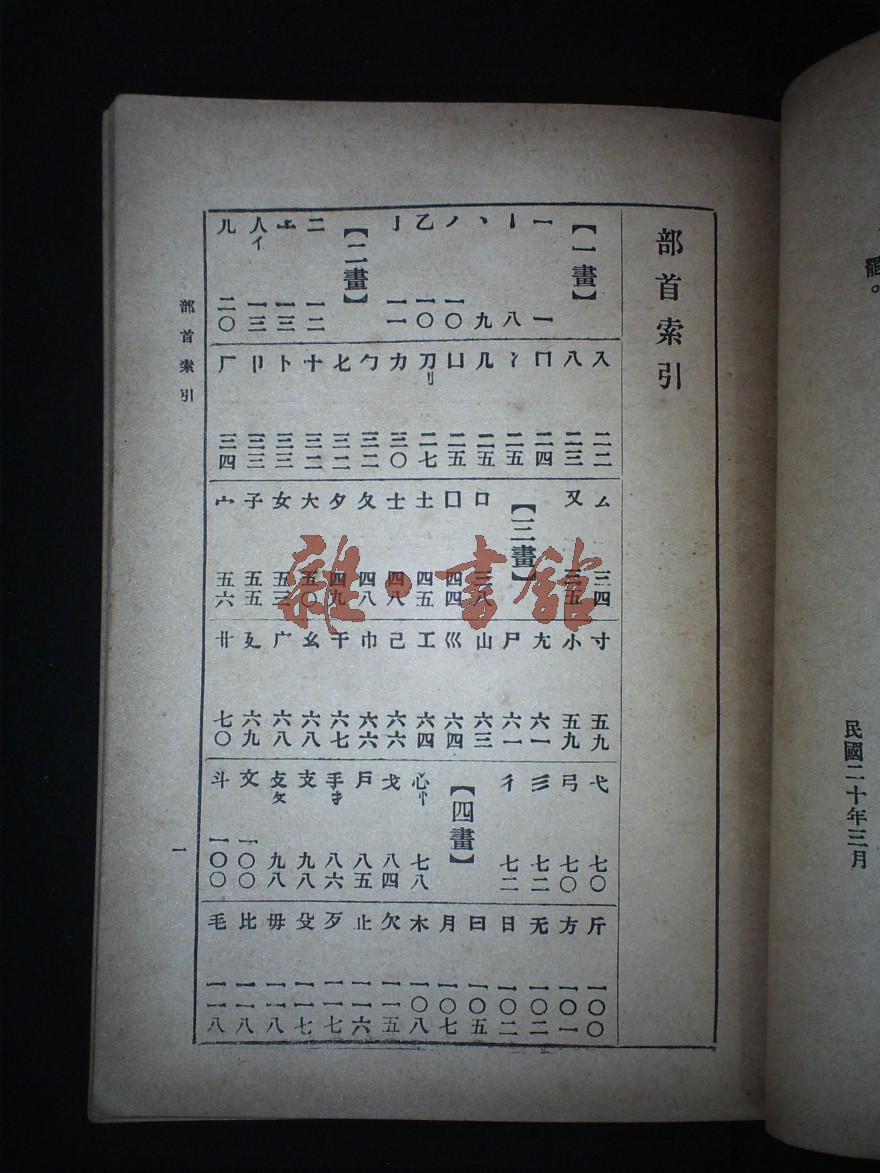 民國二十年三月
部首索引
【一畫】
一 一
丨 八
丶 九
丿 一〇
乙 一〇
亅 一一
【二畫】
二 一二
亠 一三
人亻 一三
儿 二〇
入 二二
八 二三
冂 二四
冫 二五
几 二五
凵 二五
刀刂 二七
力 三〇
勹 三二
匕 三二
十 三二
卜 三三
卩 三三
厂 三四
厶 三四
又 三五
【三畫】
口 三八
囗 四四
土 四五
士 四八
夂 四八
夕 四九
大 五〇
女 五三
子 五五
宀 五六
寸 五九
小 五九
尢 六一
尸 六一
山 六三
巛 六四
工 六四
己 六六
巾 六六
干 六七
幺 六八
广 六八
廴 六九
廾 七〇
弋 七〇
弓 七〇
彡 七二
彳 七二
【四畫】
心忄 七八
戈 八四
戶 八五
手扌 八六
支 九八
攴攵 九八
文 一〇〇
斗 一〇〇
斤 一〇〇
方 一〇一
无 一〇二
日 一〇二
曰 一〇五
月 一〇七
木 一〇八
欠 一一五
止 一一六
歹 一一七
殳 一一七
毋 一一八
比 一一八
毛 一一八
部首索引
一
雜·書館